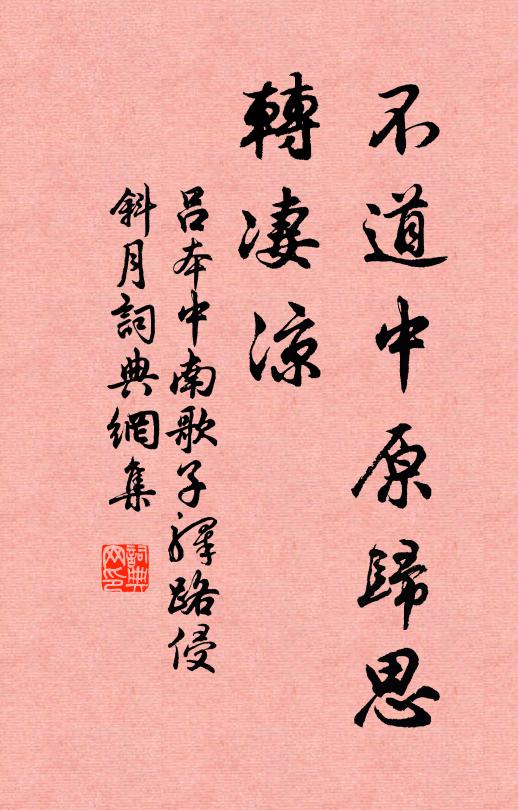 不道中原歸思
轉凄涼
呂本中南歌子驛路侵
斜月詞典網集
詞典网印